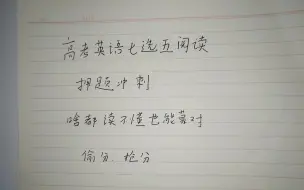 高考英语七选五阅读
押题冲刺
啥都读不懂也能蒙对
偷分、抢分